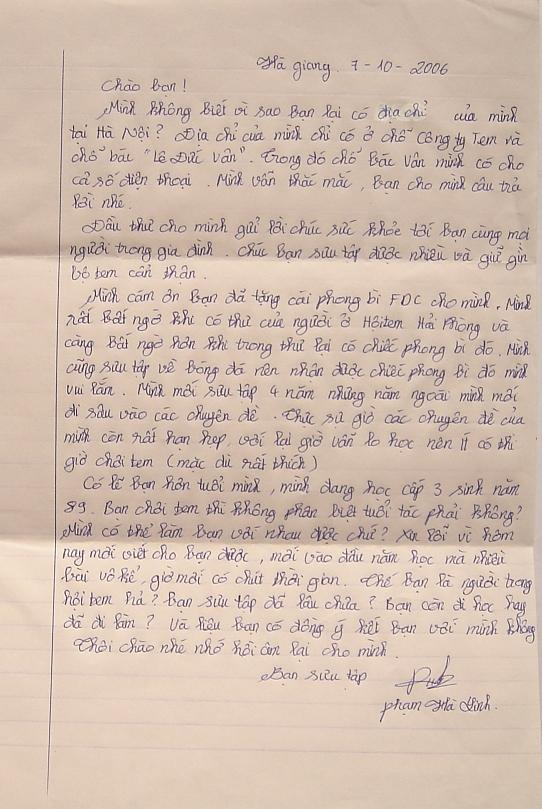 Hà giang. 7 - 10 - 2006
Chào bạn!
Mình không biết vì sao bạn lại có địa chỉ của mình
tại Hà Nội? Địa chỉ của mình chỉ có ở chỗ công ty Tem và
chỗ bác "Lê Đức Vân". Trong đó chỗ Bác Vân mình có cho
cả số điện thoại. Mình vẫn thắc mắc, Bạn cho mình câu trả
lời nhé.
Đầu thư cho mình gửi lời chúc sức khỏe tới Bạn cùng mọi
người trong gia đình. Chúc Bạn sưu tập được nhiều và giữ gìn
bộ tem cẩn thận.
Mình cám ơn Bạn đã tặng cái phong bì FDC cho mình. Mình
rất Bất ngờ khi có thư của người ở Hội tem Hải Phòng và
càng Bất ngờ hơn khi trong thư lại có chiếc phong bì đó. Mình
cũng sưu tập về bóng đá nên nhận được chiếc phong bì đó mình
vui lắm. Mình mới sưu tập 4 năm nhưng năm ngoái mình mới
đi sâu vào các chuyên đề. Thực sự giờ các chuyên đề của
mình còn rất hạn hẹp, với lại giờ vẫn lo học nên ít có thì
giờ chơi tem (mặc dù rất thích)
Có lẽ Bạn hơn tuổi mình, mình đang học cấp 3 sinh năm
89. Bạn chơi tem thì không phân biệt tuổi tác phải không?
Mình có thể làm Bạn với nhau được chứ? Xin lỗi vì hôm
nay mới viết cho Bạn được, mới vào đầu năm học mà nhiều
bài vô kể, giờ mới có chút thời gian. Thế Bạn là người trong
hội tem hả? Bạn sưu tập đã lâu chưa? Bạn còn đi học hay
đã đi làm? Và liệu Bạn có đồng ý kết Bạn với mình không
Thôi chào nhé nhớ hồi âm lại cho mình.
Bạn sưu tập
phạm Hà